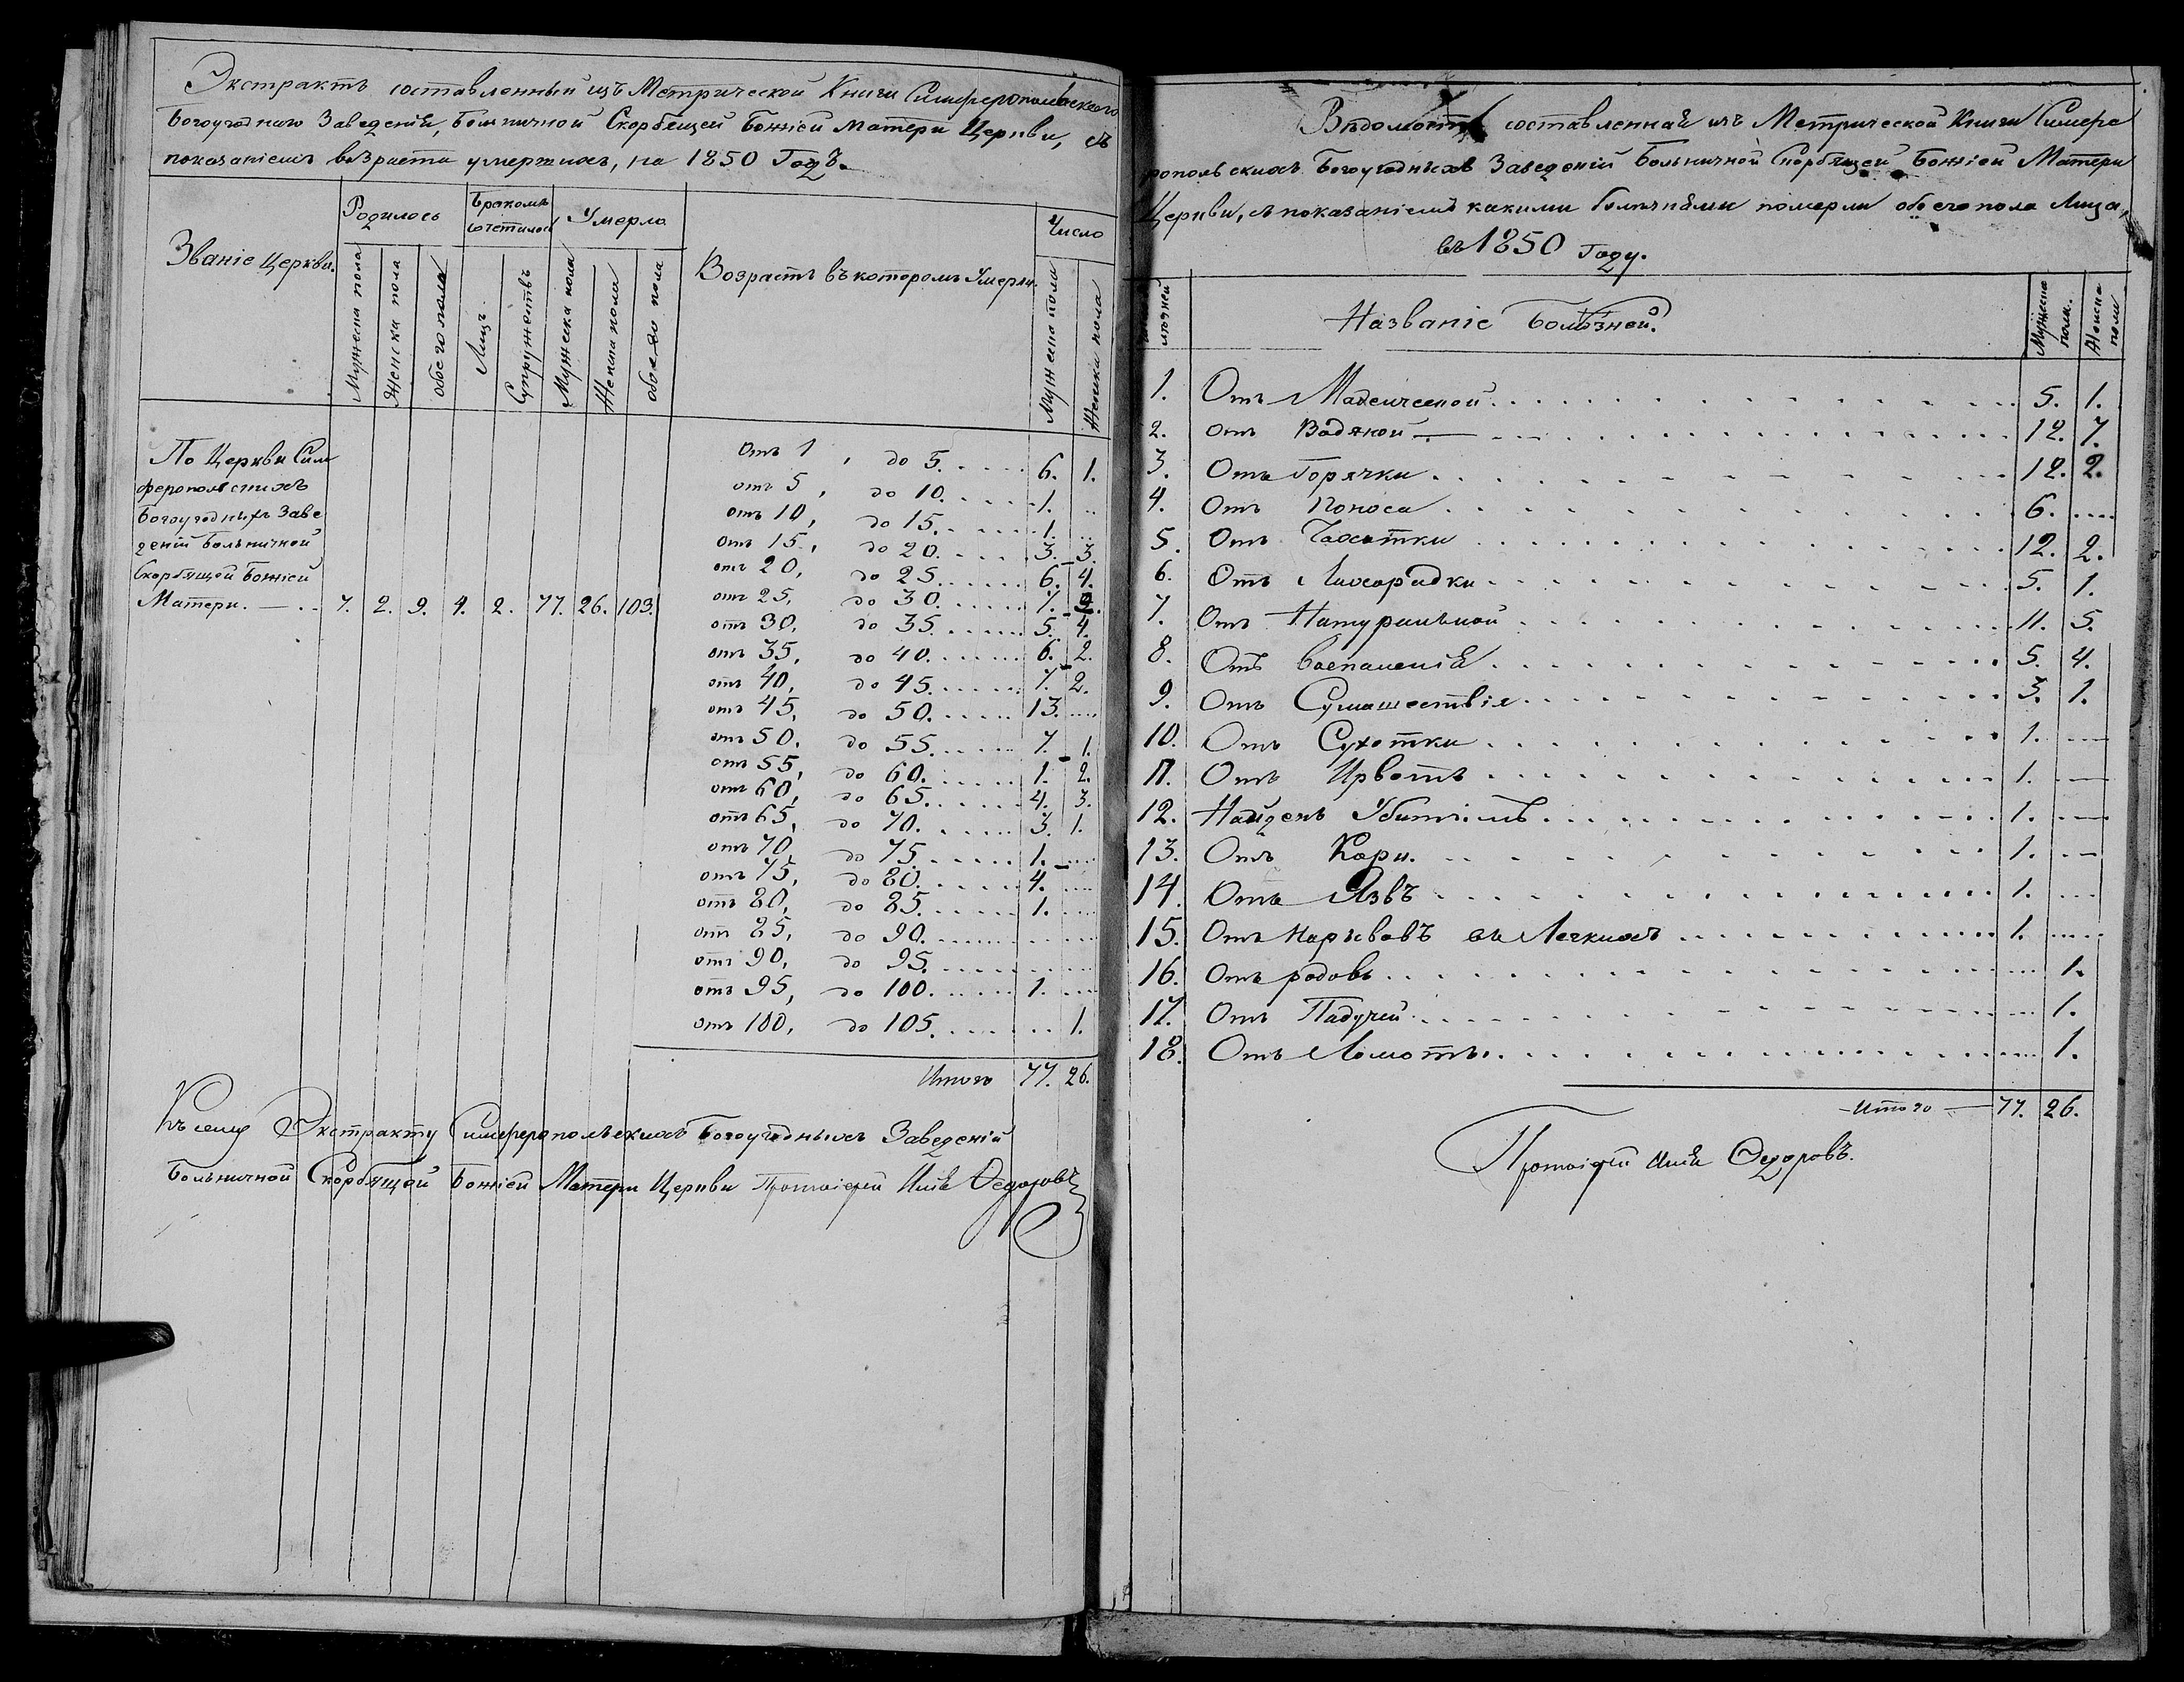 Экстрактъ составленный изъ Метрической Книги Симферопольскаго
Богоугоднаго Заведенія, Больничной Скорбящей Божіей Матери Церкви, съ
показаніемъ возраста умершихъ, на 1850 Годъ.
Званіе Церкви.
Родилось
Бракомъ сочеталось
Умерло
Возрастъ въ которомъ Умерли.
Число
Мужеска пола
Женска пола
обоего пола
Лицъ
Супружествъ
Мужеска пола
Женска пола
обоего пола
Мужеска пола
Женска пола
По Церкви Сим
феропольскихъ
Богоугодныхъ Заве
деній Больничной
Скорбящей Божіей
Матери. 7. 2. 9. 4. 2. 77. 26. 103.
Отъ 1, до 5. 6. 1.
отъ 5, до 10. 1.
отъ 10, до 15. 1.
отъ 15, до 20. 3. 3.
отъ 20, до 25. 6. 4.
отъ 25, до 30. 7.
отъ 30, до 35. 5. 4.
отъ 35, до 40. 6. 2.
отъ 40, до 45. 7. 2.
отъ 45, до 50. 13.
отъ 50, до 55. 7. 1.
отъ 55, до 60. 1. 2.
отъ 60, до 65. 4. 3.
отъ 65, до 70. 3. 1.
отъ 70, до 75. 1.
отъ 75, до 80. 4.
отъ 80, до 85. 1.
отъ 85, до 90.
отъ 90, до 95.
отъ 95, до 100. 1.
отъ 100, до 105. 1.
Итого 77. 26.
Къ сему Экстракту Симферопольскихъ Богоугодныхъ Заведеній
Больничной Скорбящой Божіей Матери Церкви Протоіерей Илія Ѳедоровъ
Вѣдомость составленная изъ Метрической Книги Симфе
ропольскихъ Богоугодныхъ Заведеній Больничной Скорбящей Божіей Матери
Церкви, съ показаніемъ какими болѣзнями померли обоего пола Лица,
въ 1850 Году.
Названіе Болѣзней.
Мужеска пола.
Женска пола
1. Отъ Младенческой 5. 1.
2. отъ Водяной 12. 7.
3. Отъ Горячки 12. 2.
4. Отъ Поноса 6.
5. Отъ Чахотки 12. 2.
6. Отъ Лихорадки 5. 1.
7. Отъ Натуральной 11. 5.
8. Отъ Воспаленія 5. 4.
9. Отъ Сумашествія 3. 1.
10. Отъ Сухотки 1.
11. Отъ 1.
12. Найденъ Убитымъ 1.
13. Отъ Кори. 1.
14. Отъ Язвъ 1.
15. Отъ Нарывовъ въ Легкихъ 1.
16. Отъ родовъ 1.
17. Отъ Падучей 1.
18. Отъ Ломоты. 1.
Итого 77. 26.
Протоіерей Илія Ѳедоровъ.